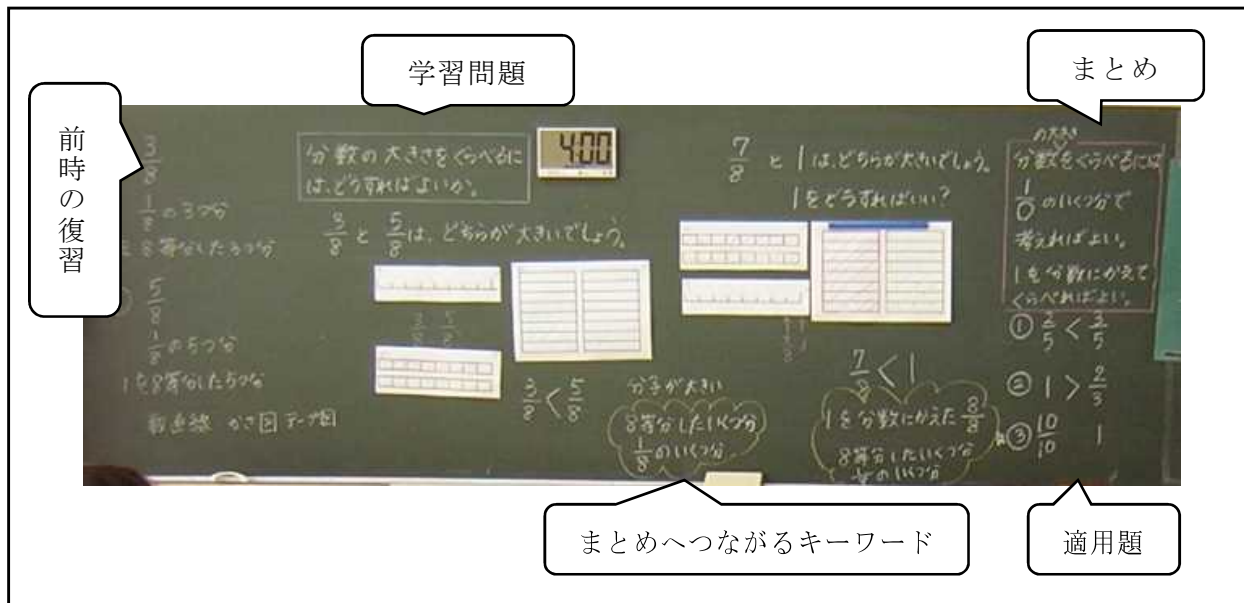 学習問題
まとめ
前時の復習
3/8
1/8の3つ分
8等分した3つ分
5/8
1/8の5つ分
1を8等分した5つ分
数直線 かさ図 テープ図
分数の大きさをくらべるに
は、どうすればよいか。
4:00
3/8と5/8は、どちらが大きいでしょう。
3/8 5/8
3/8<5/8
分子が大きい
8等分したいくつ分
1/8のいくつ分
7/8と1は、どちらが大きいでしょう。
1をどうすればいい?
7/8<1
1を分数にかえた8/8
8等分したいくつ分
のいくつ分
の大きさ
分数をくらべるには
1/0のいくつ分で
考えればよい。
1を分数にかえて
くらべればよい。
① 2/5<3/5
② 1>2/3
③ 10/10 1
まとめへつながるキーワード
適用題